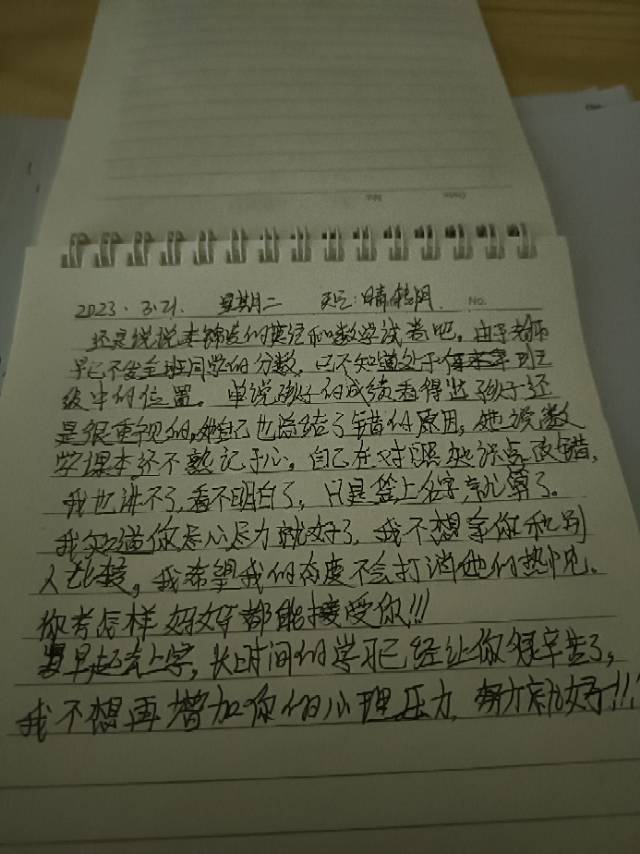 Date:
No.
2023.3.21. 星期二 天气:晴转阴. No.
还是说说李锦的英语和数学试卷吧,由于老师
早已不发全班同学的分数,已不知道处于班
级中的位置。单说孩子的成绩看得出孩子还
是很重视的,她自己也总结了错的原因,她说数
学课本经不熟记于心。自己在对照知识点改错,
我也讲不了,看不明白了,只是签上名字就算了。
我知道你尽心尽力就好了,我不想拿你和别
人比较,我希望我的态度不会打消他的热忱、
你考怎样妈妈都能接受你!!!
早起去上学,长时间的学习已经让你很辛苦了,
我不想再增加你的心理压力,努力就好!!!